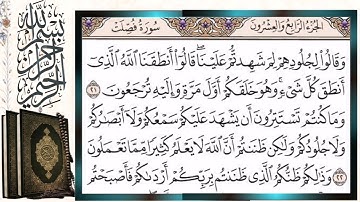 الجزء الرابع والعشرون
سورة فصلت
وَقَالُوا۟ لِجُلُودِهِمْ لِمَ شَهِدتُّمْ عَلَيْنَا ۖ قَالُوٓا۟ أَنطَقَنَا ٱللَّهُ ٱلَّذِىٓ
أَنطَقَ كُلَّ شَىْءٍ ۚ وَهُوَ خَلَقَكُمْ أَوَّلَ مَرَّةٍ وَإِلَيْهِ تُرْجَعُونَ ٢١
وَمَا كُنتُمْ تَسْتَتِرُونَ أَن يَشْهَدَ عَلَيْكُمْ سَمْعُكُمْ وَلَآ أَبْصَٰرُكُمْ
وَلَا جُلُودُكُمْ وَلَٰكِن ظَنَنتُمْ أَنَّ ٱللَّهَ لَا يَعْلَمُ كَثِيرًا مِّمَّا تَعْمَلُونَ ٢٢
وَذَٰلِكُمْ ظَنُّكُمُ ٱلَّذِى ظَنَنتُم بِرَبِّكُمْ أَرْدَىٰكُمْ فَأَصْبَحْتُم
بسم الله الرحمن الرحيم